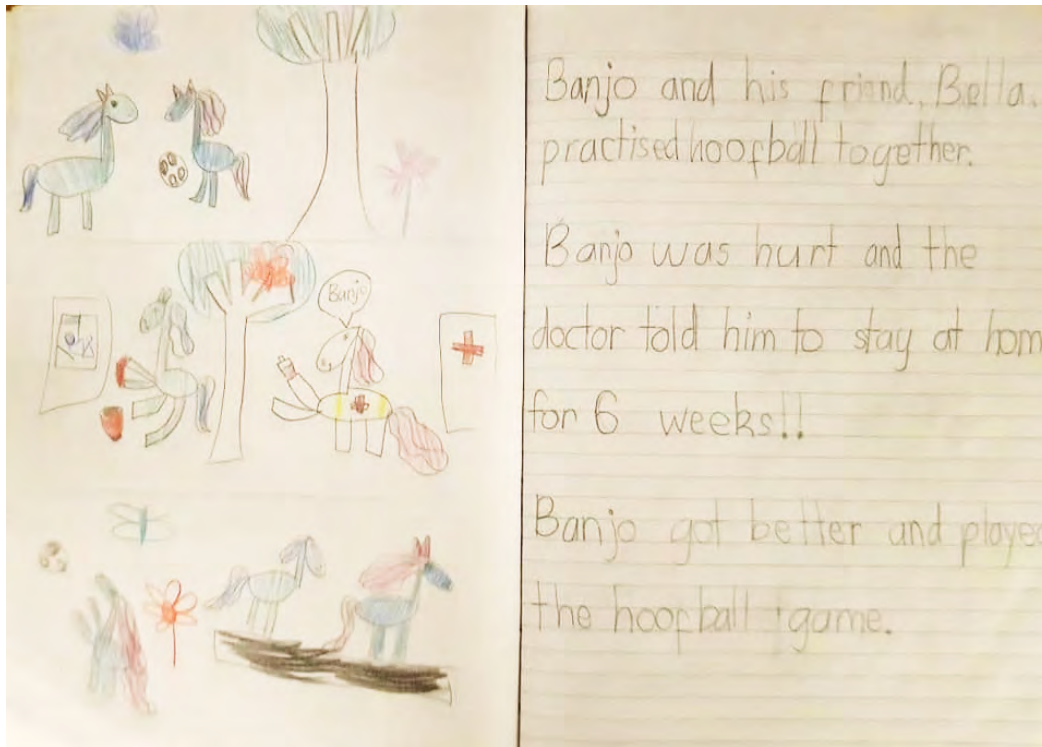 Banjo
Banjo and his friend, Bella.
practised hoofball together.
Banjo was hurt and the
doctor told him to stay at hom
for 6 weeks!!
Banjo got better and played
the hoofball game.